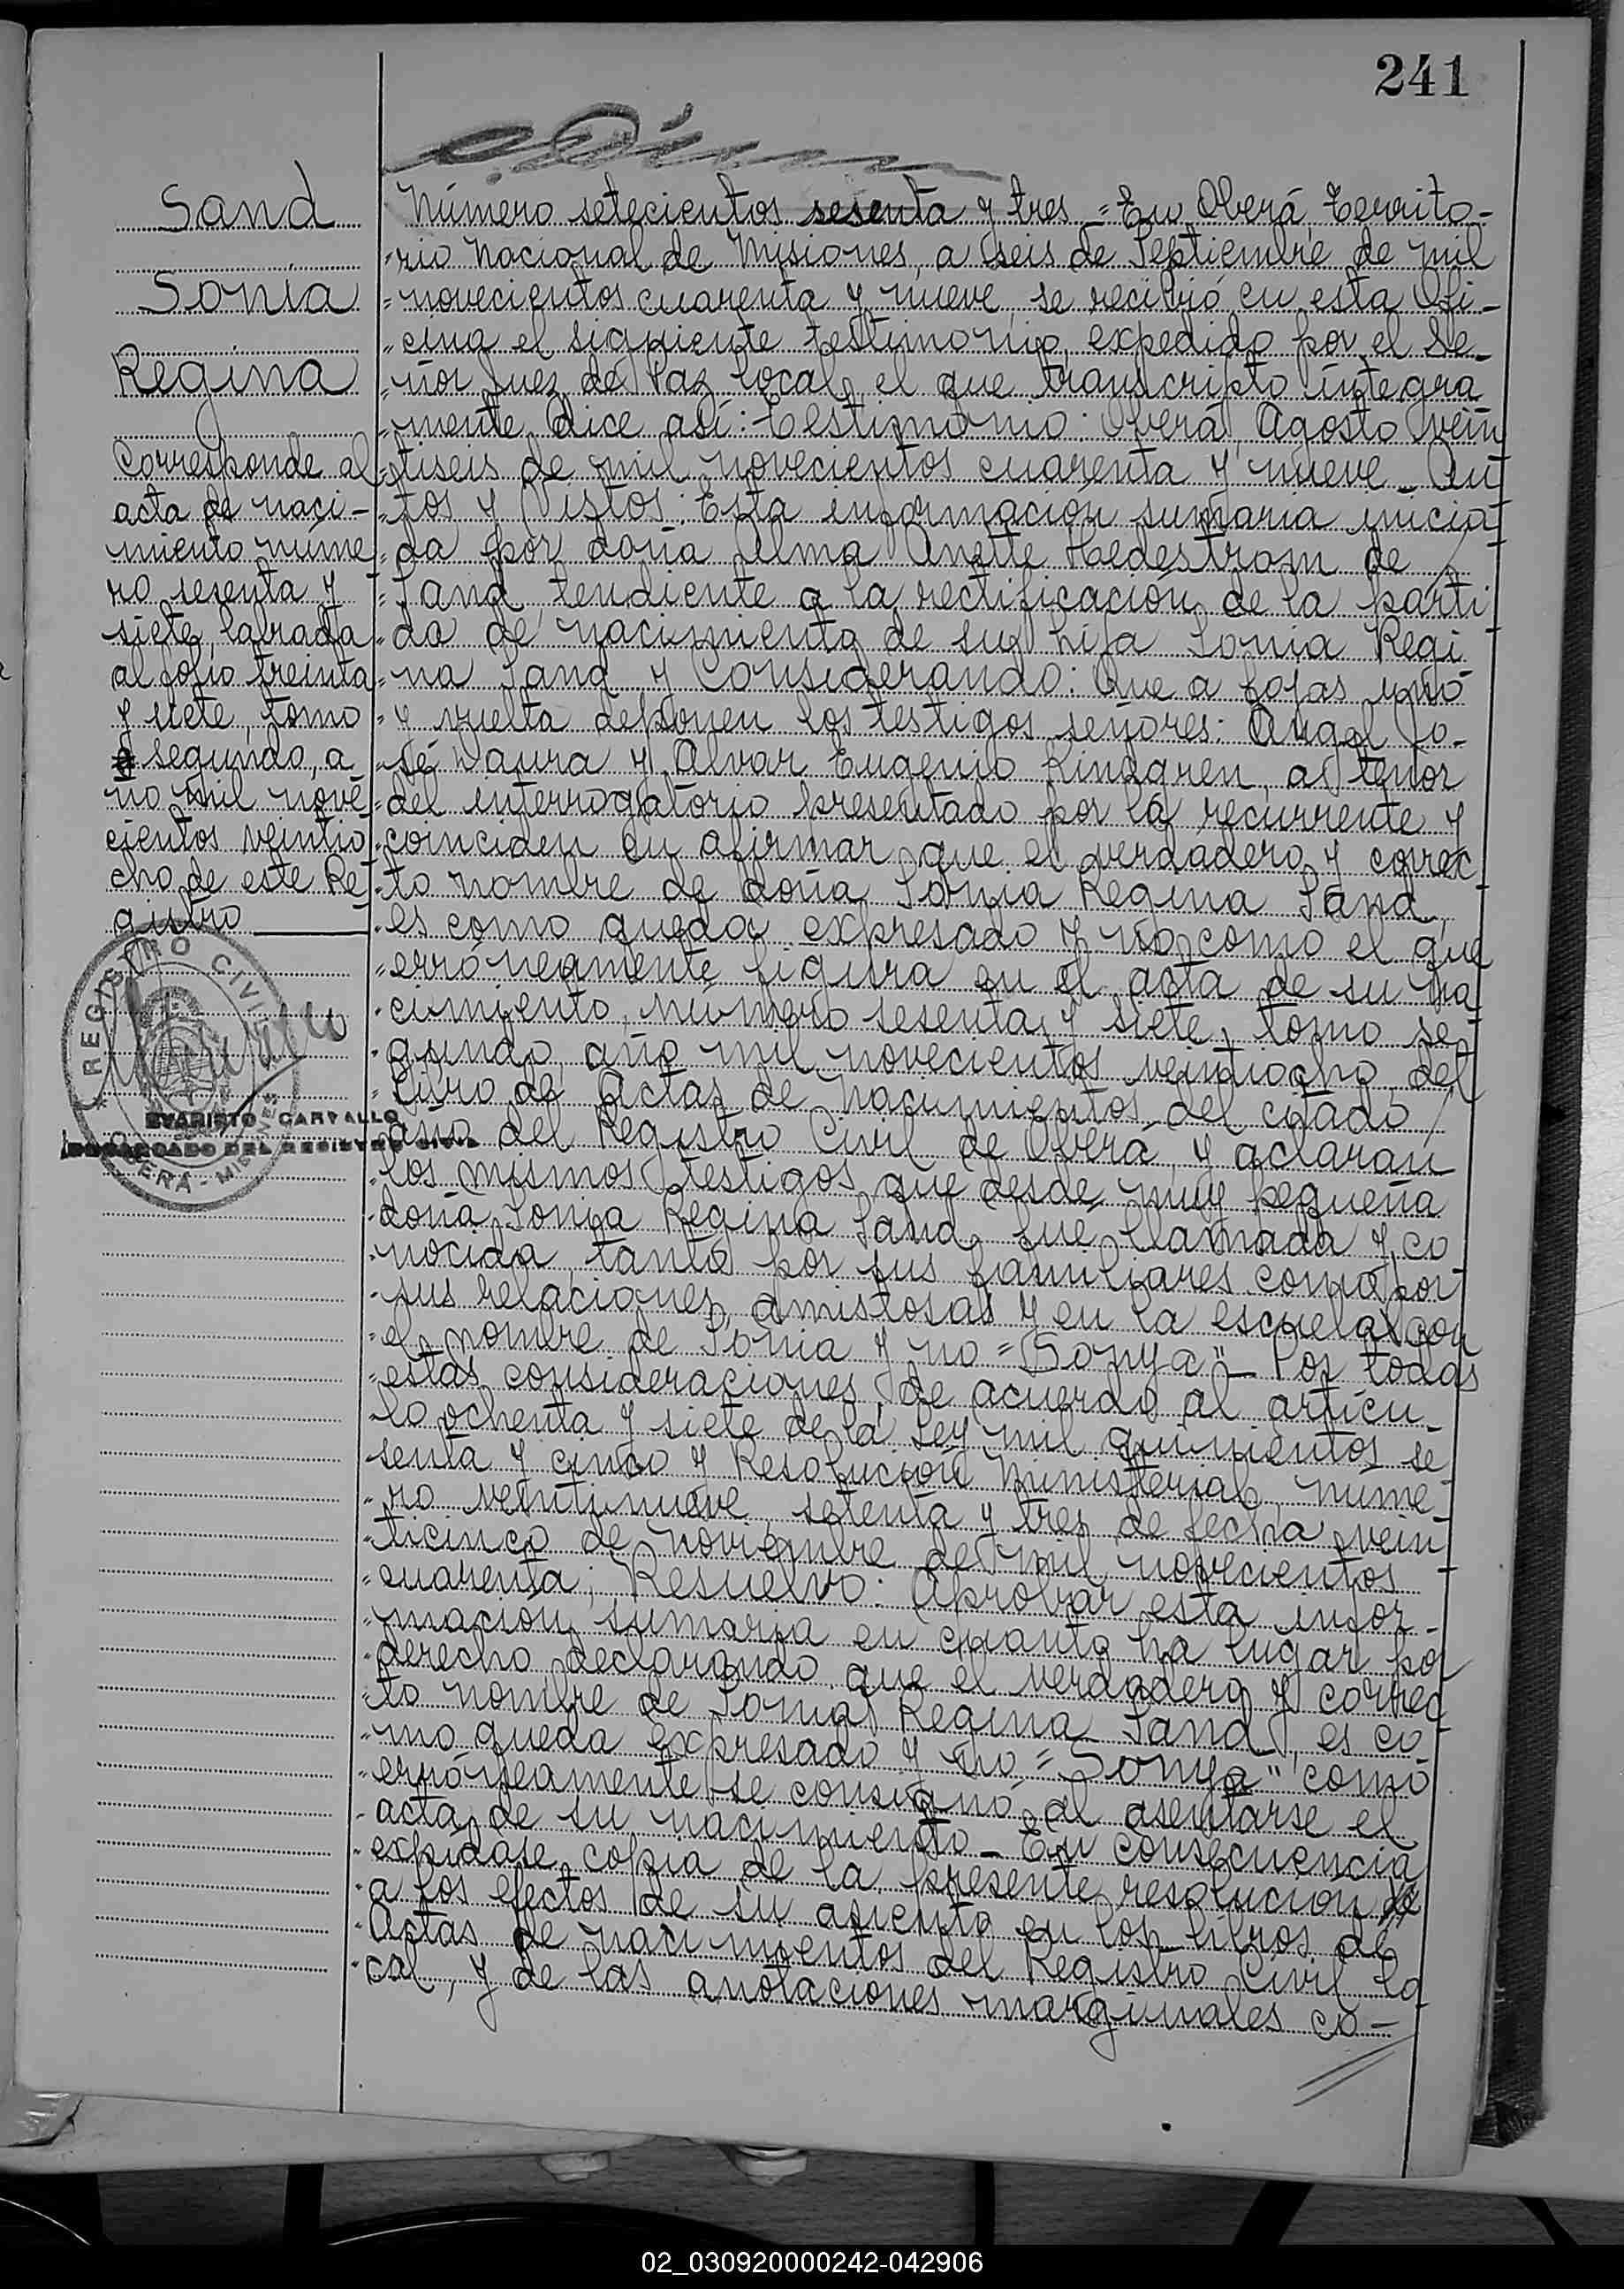 241
Sand
Sonia
Regina
Corresponde al
acta de naci-
miento núme
ro sesenta y
siete, labrada
al folio treinta
y siete, tomo
segundo, a
ño mil nove
cientos veintio
cho de este Re
gistro
REGISTRO CIVIL
OBERA - MISIONES
EVARISTO CARVALLO
ENCARGADO DEL REGISTRO CIVIL
Número setecientos sesenta y tres = En Oberá, Territo-
rio Nacional de Misiones, a seis de Septiembre de mil
novecientos cuarenta y nueve, se recibió en esta Ofi-
cina el siguiente testimonio, expedido por el Se-
ñor Juez de Paz local, el que transcripto integra
mente dice así: Testimonio: Oberá, Agosto vein
tiseis de mil novecientos cuarenta y nueve _ Au
tos y Vistos: Esta información sumaria inicia
da por doña Alma Anette Hedestrom de
Sand tendiente a la rectificación de la parti
da de nacimiento de su hija Sonia Regi
na Sand y Considerando: Que a fojas uno
y vuelta deponen los testigos señores: Angel Jo-
sé Daura y Alvar Eugenio Kindgren, a tenor
del interrogatorio presentado por la recurrente y
coinciden en afirmar que el verdadero y correc
to nombre de doña Sonia Regina Sand,
es como queda expresado y no como el que
erróneamente figura en el acta de su na
cimiento, número sesenta y siete, tomo se-
gundo, año mil novecientos veintiocho, del
Libro de Actas de nacimientos del citado
año del Registro Civil de Oberá, y aclaran
los mismos testigos que desde muy pequeña
doña Sonia Regina Sand fué llamada y co
nocida, tanto por sus familiares como por
sus relaciones amistosas y en la escuela, con
el nombre de Sonia y no = Sonya" _ Por todas
estas consideraciones, de acuerdo al artícu-
lo ochenta y siete de la Ley mil quinientos se
senta y cinco y Resolución Ministerial, núme-
ro veintinueve, setenta y tres de fecha vein
ticinco de noviembre de mil novecientos
cuarenta; Resuelvo: Aprobar esta infor-
mación sumaria en cuanto ha lugar por
derecho declarando que el verdadero y correc
to nombre de Sonia Regina Sand, es co
mo queda expresado y no = Sonya" como
erróneamente se consignó al asentarse el
acta de su nacimiento _ En consecuencia
expídase copia de la presente resolución
a los efectos de su asiento en los libros de
Actas de nacimientos del Registro Civil lo
cal, y de las anotaciones marginales co-
02_030920000242-042906